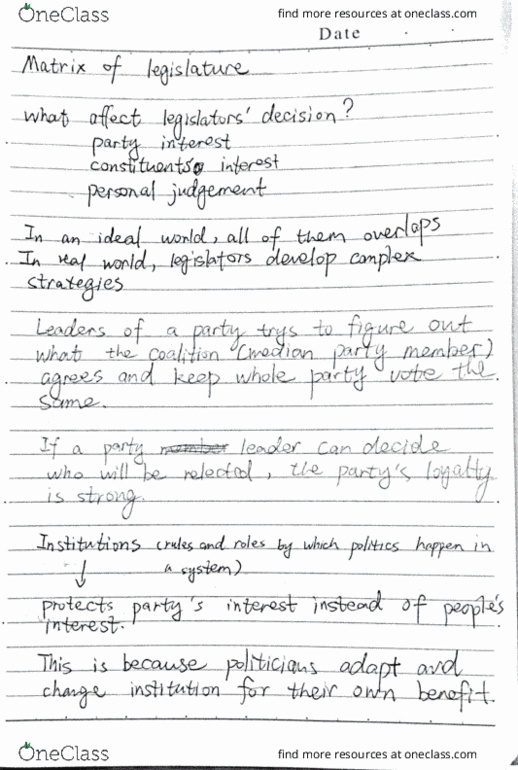 OneClass
find more resources at oneclass.com
Date
Matrix of legislature
what affect legislators' decision?
party interest
constituents interest
personal judgement
In an ideal world, all of them overlaps
In real world, legislators develop complex
strategies
Leaders of a party trys to figure out
what the coalition (median party member)
agrees and keep whole party vote the
same.
If a party member leader can decide
who will be relected, the party's loyalty
is strong.
Institutions (rules and roles by which politics happen in
a system)
↓
protects party's interest instead of people's
interest.
This is because politicians adapt and
change institution for their own benefit.
OneClass
find more resources at oneclass.com